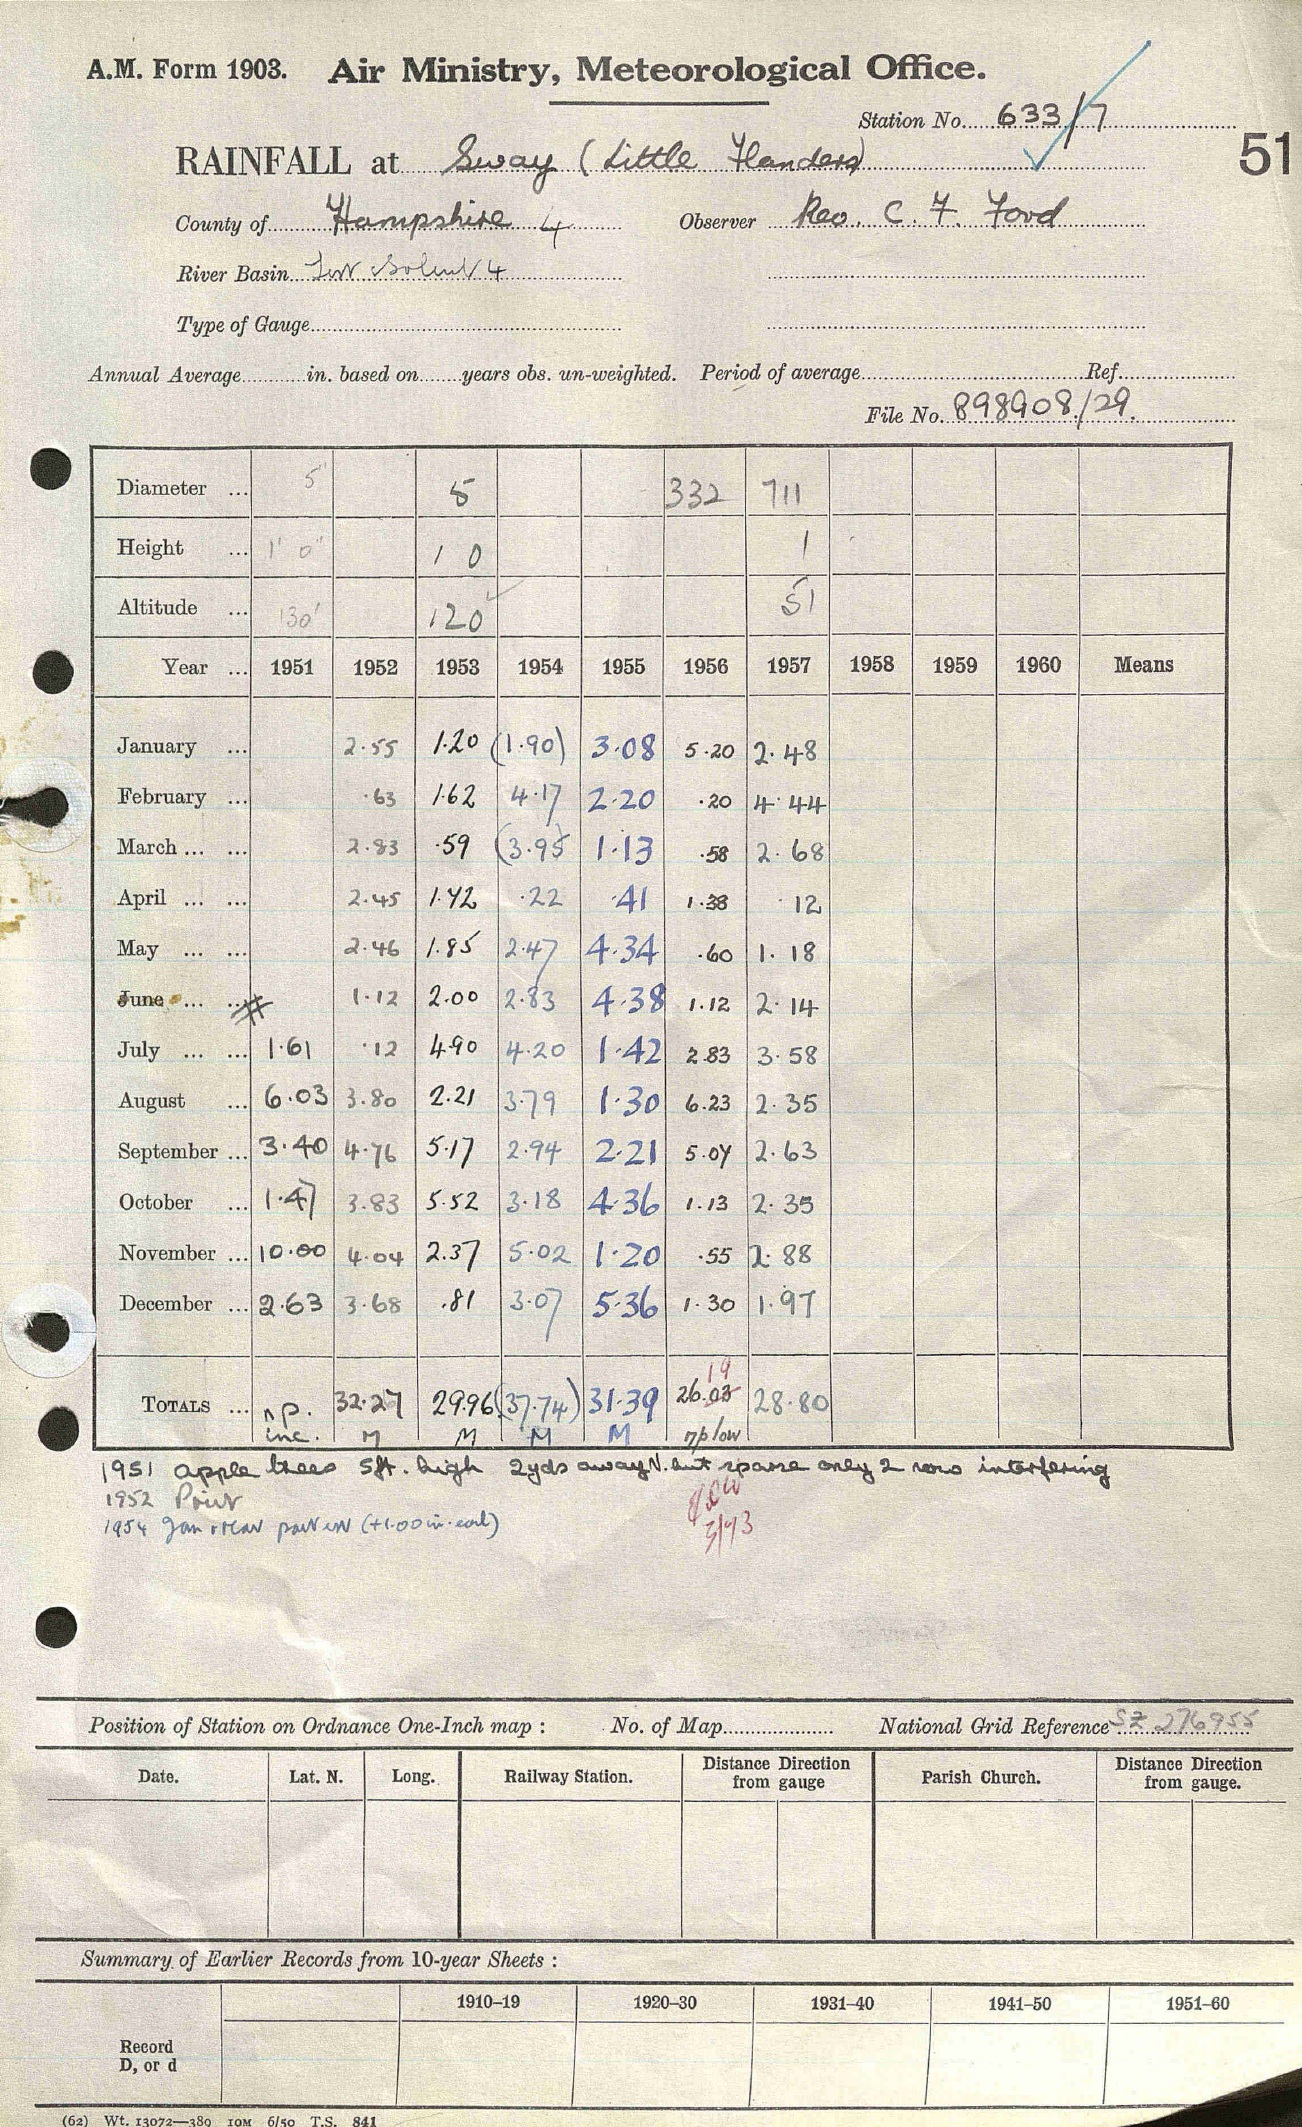 A.M. Form 1903. Air Ministry, Meteorological Office.
Station No. 633/7
51
RAINFALL at Sway (Little Flanders)
County of Hampshire 4 Observer Rev. C. F. Ford
River Basin Solent 4
Type of Gauge
Annual Average in. based on years obs. un-weighted. Period of average Ref.
File No. 898908/29.
Diameter ... 5" 5 332 711
Height ... 1' 0" 1 0 1
Altitude ... 130' 120 51
Year ... 1951 1952 1953 1954 1955 1956 1957 1958 1959 1960 Means
January ... 2.55 1.20 (1.90) 3.08 5.20 2.48
February ... .63 1.62 4.17 2.20 .20 4.44
March ... ... 2.83 .59 (3.95 1.13 .58 2.68
April ... ... 2.45 1.72 .22 .41 1.38 .12
May ... ... 2.46 1.85 2.47 4.34 .60 1.18
June ... ... 1.12 2.00 2.83 4.38 1.12 2.14
July ... ... 1.61 .12 4.90 4.20 1.42 2.83 3.58
August ... 6.03 3.80 2.21 3.79 1.30 6.23 2.35
September ... 3.40 4.76 5.17 2.94 2.21 5.07 2.63
October ... 1.47 3.83 5.52 3.18 4.36 1.13 2.35
November ... 10.00 4.04 2.37 5.02 1.20 .55 2.88
December ... 2.63 3.68 .81 3.07 5.36 1.30 1.97
19
TOTALS ... n.p. 32.27 29.96 (37.74) 31.39 26.03 28.80
inc. M M M M n/p low
1951 apple trees 5ft. high 2yds away N. but sparse only 2 rows interfering
1952 Point
1954 Jan & Mar part est (+1.00 in. each)
low
5/73
Position of Station on Ordnance One-Inch map : No. of Map National Grid Reference SZ 276955
Date. Lat. N. Long. Railway Station. Distance Direction from gauge Parish Church. Distance Direction from gauge.
Summary of Earlier Records from 10-year Sheets :
1910–19 1920–30 1931–40 1941–50 1951–60
Record
D, or d
(62) Wt. 13072—389 10M 6/50 T.S. 841